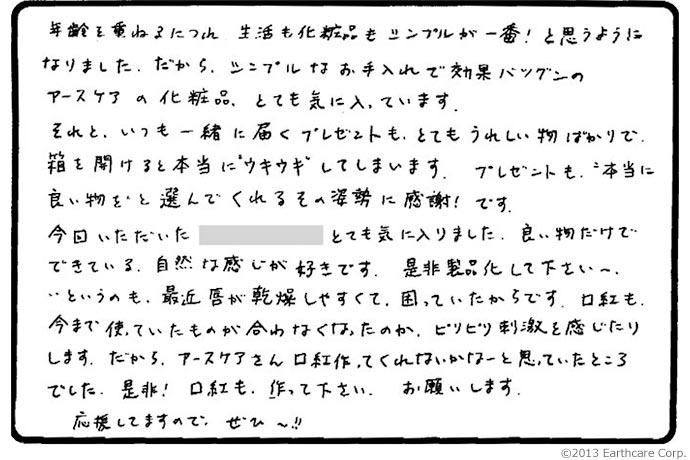 年齢を重ねるにつれ、生活も化粧品もシンプルが一番！と思うように
なりました。だから、シンプルなお手入れで効果バツグンの
アースケアの化粧品、とても気に入っています。
それと、いつも一緒に届くプレゼントも、とてもうれしい物ばかりで、
箱を開けると本当に"ウキウキ"してしまいます。 プレゼントも、"本当に
良い物を"と選んでくれるその姿勢に感謝！です。
今回いただいた とても気に入りました。良い物だけで
できている、自然な感じが好きです。 是非製品化して下さい〜。
"というのも、最近唇が乾燥しやすくて、困っていたからです。口紅も、
今まで使っていたものが合わなくなったのか、ピリピリ刺激を感じたり
します。だから、アースケアさん口紅作ってくれないかなーと思っていたところ
でした。是非！ 口紅も、作って下さい。 お願いします。
応援してますので、ぜひ〜!!
©2013 Earthcare Corp.